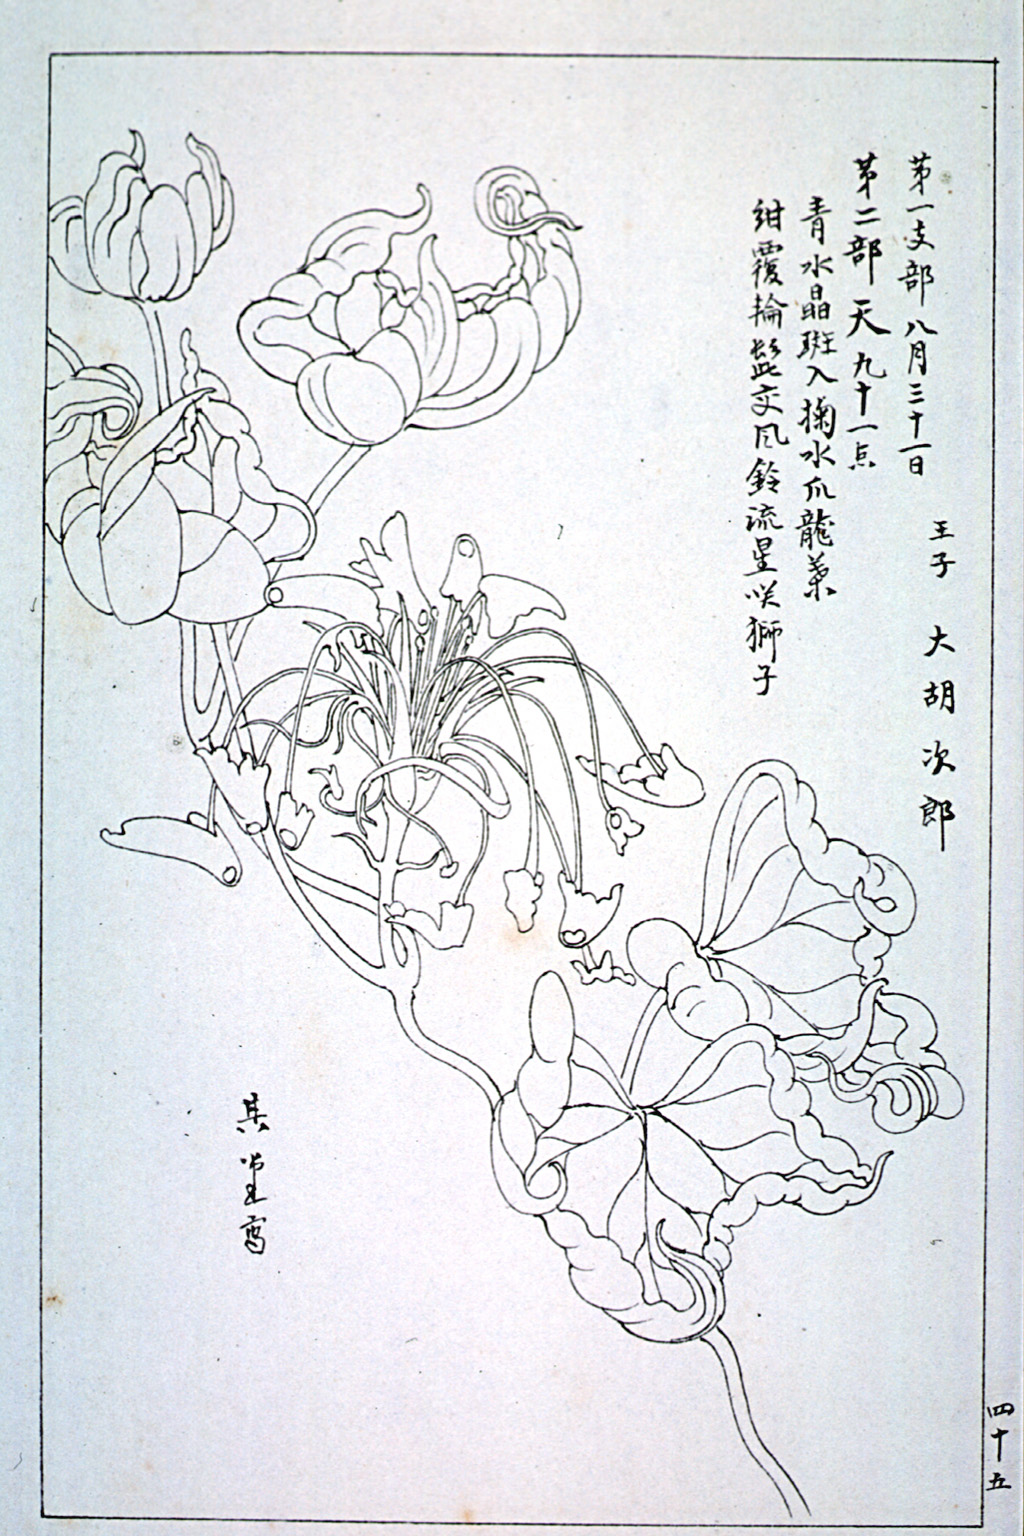 第一支部 八月三十一日
王子 大胡次郎
第二部 天 九十一点
青水晶斑入掬水爪龍葉
紺覆輪髭交風鈴流星咲獅子
其堂写
四十五